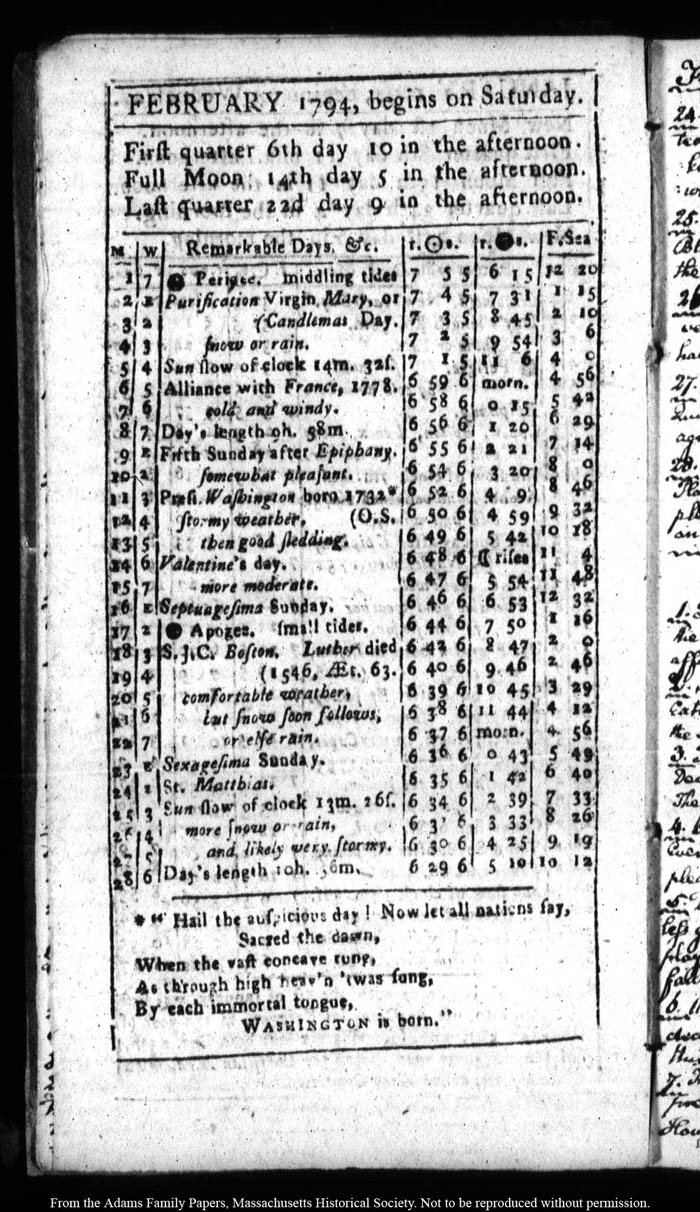 FEBRUARY 1794, begins on Saturday.
Firſt quarter 6th day 10 in the afternoon.
Full Moon 14th day 5 in the afternoon.
Laſt quarter 22d day 9 in the afternoon.
M. W. Remarkable Days, &c. r. ☉ s. r. ● s. F. Sea
1 7 ● Perigee. middling tides 7 5 5 6 15 12 20
2 E Purification Virgin Mary, or 7 4 5 7 31 1 15
3 2 (Candlemas Day. 7 3 5 8 45 2 10
4 3 ſnow or rain. 7 2 5 9 54 3 6
5 4 Sun ſlow of clock 14m. 32ſ. 7 1 5 11 6 4 0
6 5 Alliance with France, 1778. 6 59 6 morn. 4 56
7 6 cold and windy. 6 58 6 0 15 5 42
8 7 Day's length 9h. 58m. 6 56 6 1 20 6 29
9 E Fifth Sunday after Epiphany. 6 55 6 2 21 7 14
10 2 ſomewhat pleaſant. 6 54 6 3 20 8 0
11 3 Preſ. Waſhington born 1732* 6 52 6 4 9 8 46
12 4 ſtormy weather, (O.S. 6 50 6 4 59 9 32
13 5 then good ſledding. 6 49 6 5 42 10 18
14 6 Valentine's day. 6 48 6 ☾ riſes 11 4
15 7 more moderate. 6 47 6 5 54 11 48
16 E Septuageſima Sunday. 6 46 6 6 53 12 32
17 2 ● Apogee. ſmall tides. 6 44 6 7 50 1 16
18 3 S.J.C. Boſton. Luther died 6 42 6 8 47 2 0
19 4 (1546, Æt. 63. 6 40 6 9 46 2 46
20 5 comfortable weather, 6 39 6 10 45 3 29
21 6 but ſnow ſoon follows, 6 38 6 11 44 4 12
22 7 or elſe rain. 6 37 6 morn. 4 56
23 E Sexageſima Sunday. 6 36 6 0 43 5 49
24 2 St. Matthias. 6 35 6 1 42 6 40
25 3 Sun ſlow of clock 13m. 26ſ. 6 34 6 2 39 7 33
26 4 more ſnow or rain, 6 6 3 33 8 26
5 and likely very ſtormy. 6 30 6 4 25 9 19
28 6 Day's length 10h. 6 29 6 5 10 10 12
* " Hail the auſpicious day! Now let all nations ſay,
Sacred the dawn,
When the vaſt concave rung,
As through high heav'n 'twas ſung,
By each immortal tongue,
WASHINGTON is born."
24.
25.
the
26
27.
28.
1.
the
3.
The
4.
5.
6.
7.
From the Adams Family Papers, Massachusetts Historical Society. Not to be reproduced without permission.